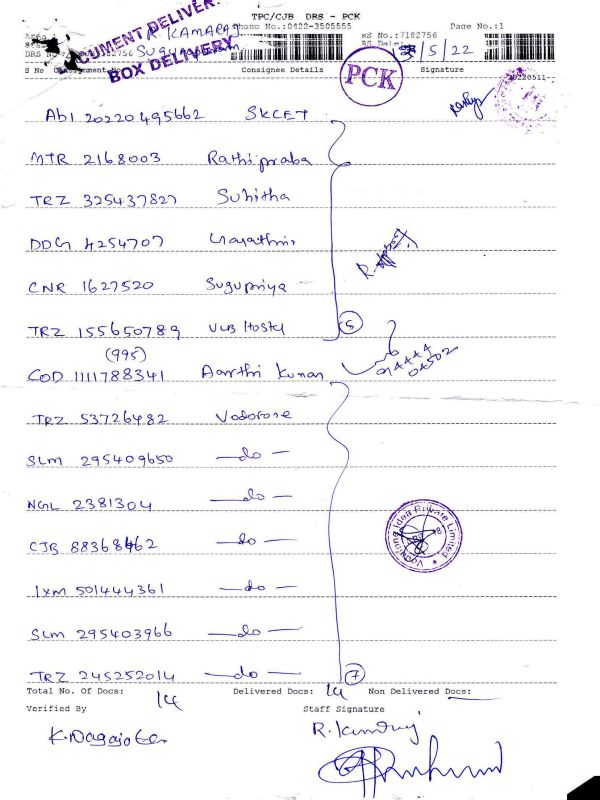 TPC/CJB DRS - PCK
Phone No.:0422-3505555
Page No.:1
DOCUMENT DELIVERY
BOX DELIVERY
R. KAMARAJ
Sugumaram
RS No.:7182756
/5/22
S No Consignment No
Consignee Details
Signature
PCK
20220511
Abl 20220495662 SKCET
MTR 2168003 Rathipraba
TRZ 325437827 Suhitha
DDG 4254707 Gayathri
CNR 1627520 Sugupriya
TRZ 155650789 VLB Hostel 6
(995)
COD 1111788341 Aarthi Kumar 94444 04502
TRZ 53726482 Vodofone
SLM 295409650 —do—
NGL 2381304 —do—
CJB 88368462 —do—
IXM 501444361 —do—
SLM 295403966 —do—
TRZ 245252014 —do— 7
Vodafone Idea Private Limited
Total No. Of Docs: 14 Delivered Docs: 14 Non Delivered Docs:
Verified By
Staff Signature